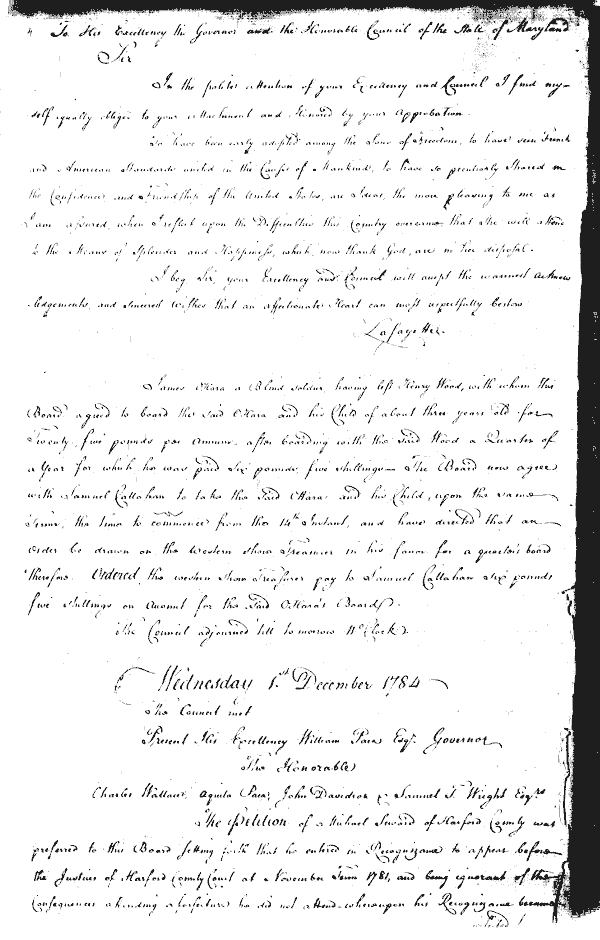 To His Excellency the Governor and the Honorable Council of the State of Maryland
Sir
In the polite attention of your Excellency and Council I find my-
self equally obliged to your Attachment and Honored by your Approbation.
To have been early adopted among the Sons of Freedom, to have seen French
and American Standards united in the Cause of Mankind, to have so peculiarly Shared in
the Confidence and Friendship of the United States, are Ideas, the more pleasing to me as
I am assured, when I reflect upon the Difficulties this Country overcame that She will attend
to the Means of Splendor and Happiness, which, now thank God, are in her disposal.
I beg Sir, your Excellency and Council will accept the warmest Acknow
ledgements, and sincerest Wishes that an affectionate Heart can most respectfully bestow
LaFayette.
James OHara a Blind Soldier, having left Henry Wood, with whom this
Board agreed to board the said OHara and his Child of about three years old for
Twenty five pounds per Annum, after boarding with the said Wood a Quarter of
a Year for which he was paid Six pounds, five shillings — The Board now agree
with Samuel Callahan to take the said OHara and his Child, upon the same
Terms, the time to commence from the 14th Instant, and have directed that an
order be drawn on the Western Shore Treasurer in his favor for a quarter's board
therefore. Ordered, the western Shore Treasurer pay to Samuel Callahan Six pounds
five shillings on Account for the said OHara's Board.
The Council adjourned till to morrow 11 oClock.
Wednesday 1st December 1784
The Council met
Present His Excellency William Paca Esqr. Governor
The Honorable
Charles Wallace, Aquila Paca, John Davidson & Samuel T. Wright Esqrs
The Petition of a Michael Seward of Harford County was
preferred to this Board setting forth that he entered in Recognizance to appear before
the Justices of Harford County Court at November Term 1781, and being ignorant of the
Consequences attending a forfeiture he did not attend whereupon his Recognizance became